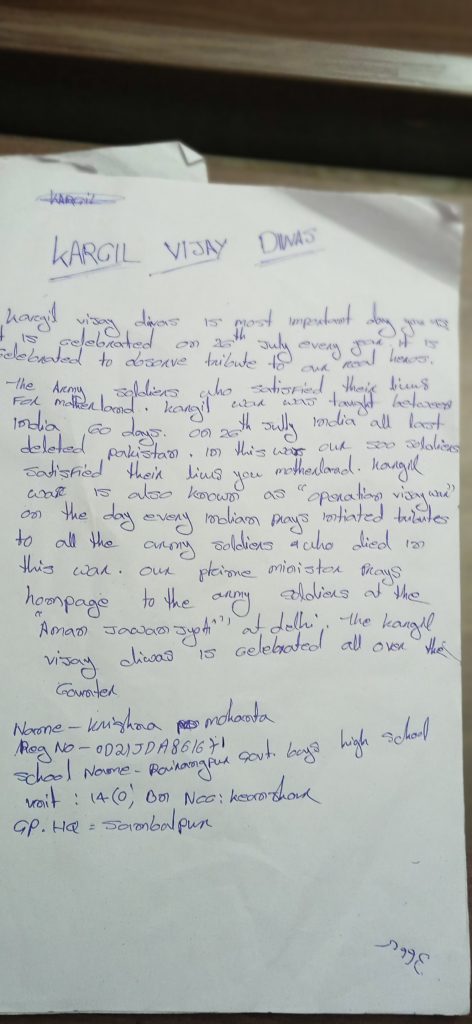 KARGIL
KARGIL VIJAY DIWAS
Kargil vijay divas is most important day you us
it is celebrated on 26th July every year. it is
celebrated to observe tribute to our real heros.
The Army soldiers who satisfied their lives
For motherland. Kargil war was taught between
India 60 days. on 26th July India all last
deleted pakistan. in this war our 500 soldiers
satisfied their lives you motherland. kargil
war is also known as "operation vijay war"
on the day every indian prays intiated tributes
to all the army soldiers who died in
this war. our prime minister prays
hompage to the army soldiers at the
"Amar Jawan Jyoti" at delhi. The kargil
vijay diwas is celebrated all over the
Name - Krishna mohanta
Reg No - OD21JDA861671
school Name - Rairangpur Govt. boys high school
unit : 14(O) Bn NCC: keonjhar
GP. HQ = Sambalpur